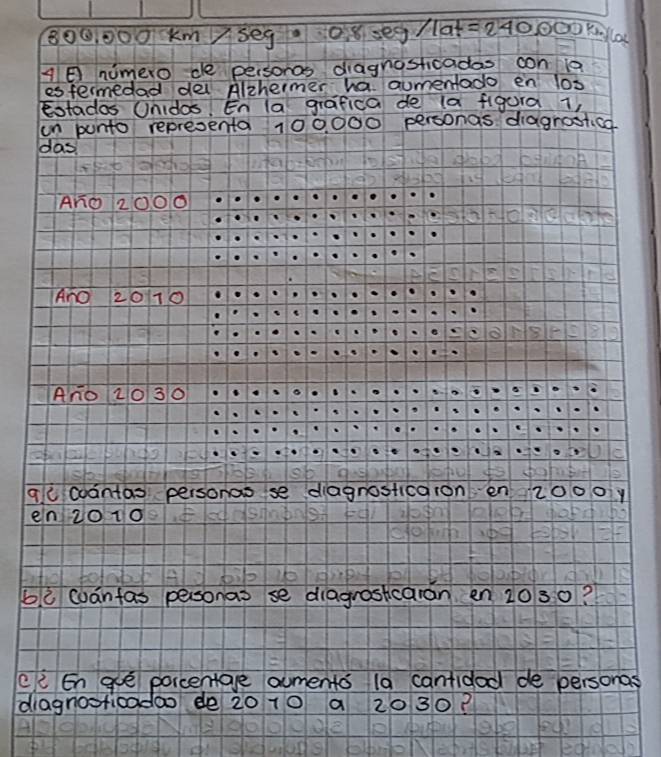 300,000 km / seg • 0.8 seg / lat = 240,000 km/lat
4 El número de personas diagnosticadas con la
esfermedad del Alzhermer ha aumentado en los
Estados Unidos. En la gráfica de la figura 1,
un punto representa 100,000 personas diagnostica
das
Año 2000
Año 2010
Año 2030
a ¿ cuántas personas se diagnosticaron en 2000 y
en 2010
b. ¿ cuántas personas se diagnosticarón en 2030?
c ¿ En qué porcentaje aumentó la cantidad de personas
diagnosticadas de 2010 a 2030?